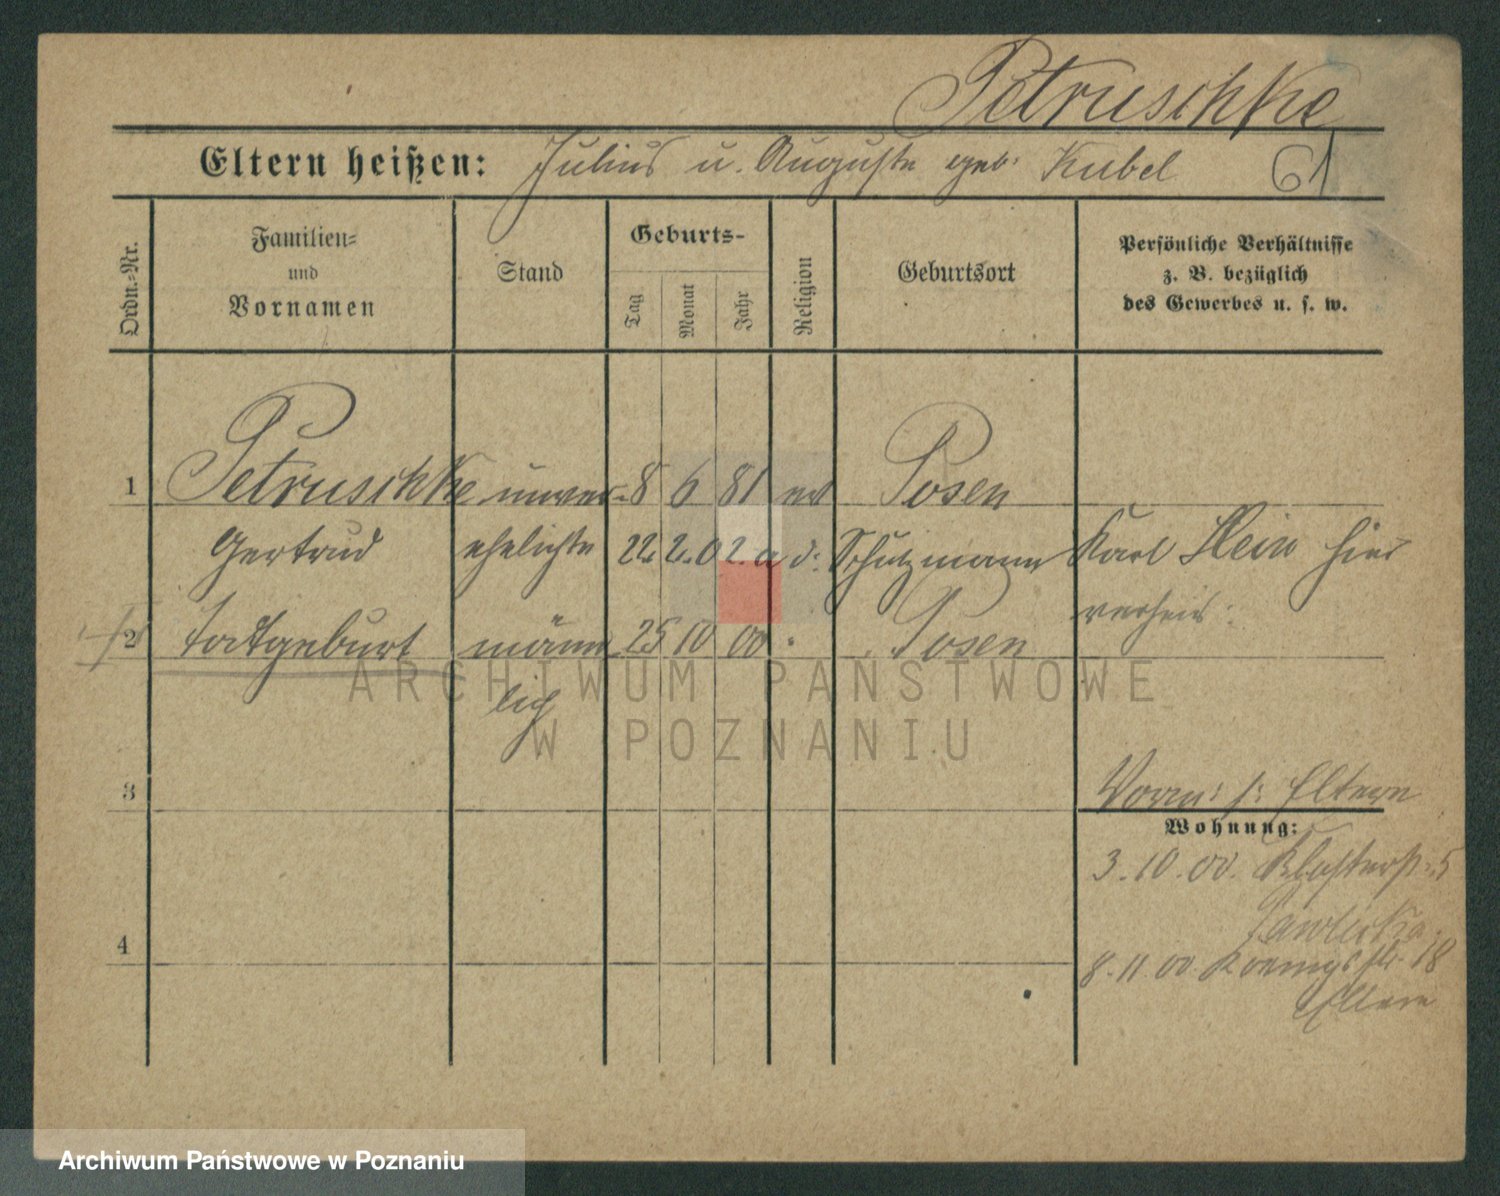 Petruschke
Eltern heißen: Julius u. Auguste geb. Kubel 61
Ordn.-Nr.
Familien-
und
Vornamen
Stand
Geburts-
Tag
Monat
Jahr
Religion
Geburtsort
Persönliche Verhältnisse
z. B. bezüglich
des Gewerbes u. s. w.
1 Petruschke unver- 8 6 81 ev Posen
Gertrud ehelichte 22. 2. 02. a d. Schutzmann Karl Hein hier
verheir:
2 Todtgeburt männ 25 10 00 " Posen
lich
3
Vorm: s: Eltern
Wohnung:
3.10.00. Klosterstr. 5
4
8.11.00. Koenigsstr. 18
Eltern
ARCHIWUM PAŃSTWOWE
W POZNANIU
Archiwum Państwowe w Poznaniu